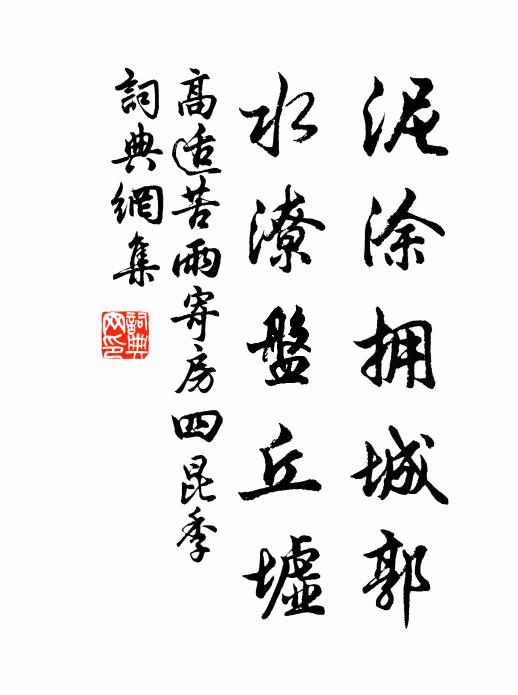 泥涂拥城郭
水潦盤丘墟
高适苦雨寄房四昆季
詞典網集
詞典网印